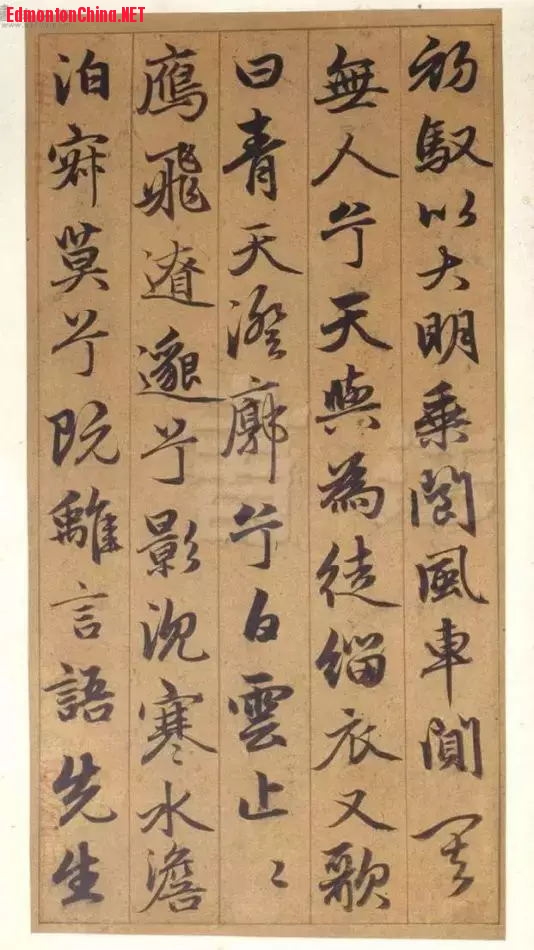 EdmontonChina.NET
初馭以大明乘閬風車闃其
無人兮天與為徒緇衣又歌
曰青天澄廓兮白雲止〻
鴈飛遼邈兮影沉寒水澹
泊寂莫兮既離言語先生